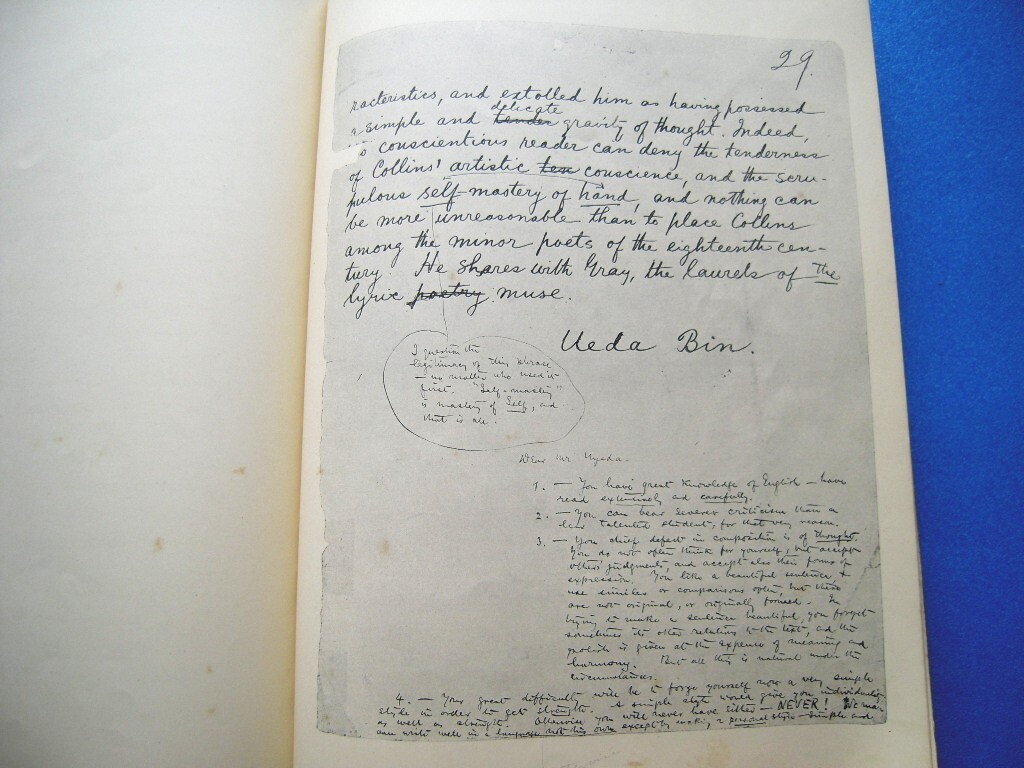 29.
racteristics, and extolled him as having possessed
a simple and tender delicate gravity of thought. Indeed,
o conscientious reader can deny the tenderness
of Collins' artistic ten conscience, and the scru-
pulous self-mastery of hand, and nothing can
be more unreasonable than to place Collins
among the minor poets of the eighteenth cen-
tury. He shares with Gray, the laurels of the
lyric poetry muse.
Ueda Bin.
I question the
legitimacy of this phrase
— no matter who used it
first. "Self-mastery"
is mastery of Self, and
that is all.
Dear Mr Uyeda.
1. — You have great knowledge of English — have
read extensively and carefully.
2. — You can bear severer criticism than a
less talented student, for that very reason.
3. — You chief defect in composition is of thought.
You do not often think for yourself, but accept
others judgments, and accept also their forms of
expression. You like a beautiful sentence, &
use similes or comparisons often, but these
are not original, or originally formed. In
trying to make a sentence beautiful, you forget
sometimes its other relations to the text, and the
polish is given at the expense of meaning and
harmony. But all this is natural under the
circumstances.
4. — Your great difficulty will be to forge yourself now a very simple
style in order to get strength. A simple style would give you individuality
as well as strength. Otherwise you will never have either — NEVER! No man
can write well in a language not his own except by making a personal style — simple and